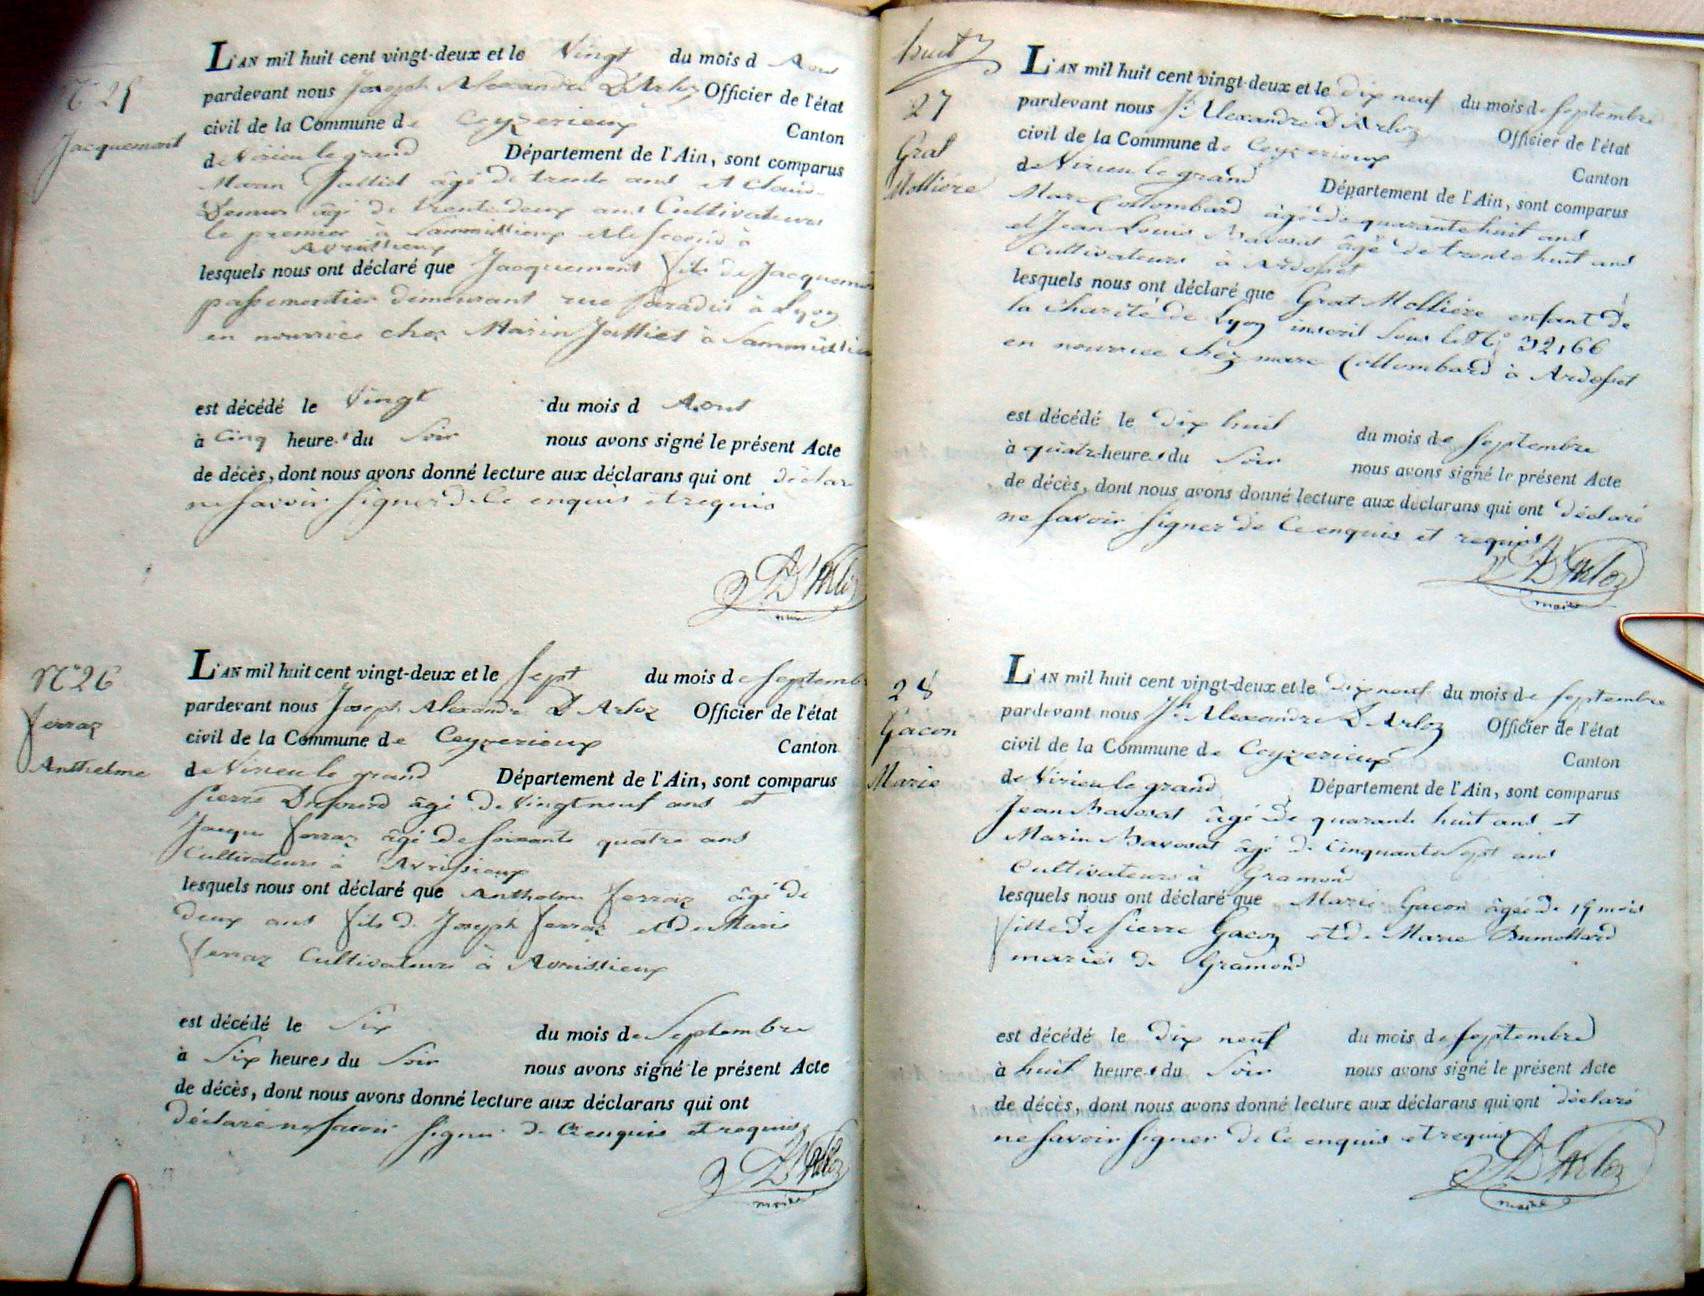 N° 25
Jacquemont
L'AN mil huit cent vingt-deux et le Vingt du mois d Aout
pardevant nous Joseph Alexandre D'Arloz Officier de l'état
civil de la Commune de Ceyzerieux Canton
de Virieu le grand Département de l'Ain, sont comparus
Marin Jalliet âgé de trente ans et Claude
âgé de trente deux ans Cultivateurs
le premier à Sammissieux et le second à
Avrissieux
lesquels nous ont déclaré que Jacquemont fils de Jacquemont
passementier demeurant rue paradis à Lyon
en nourrice chez Marin Jalliet à Sammissieux
est décédé le Vingt du mois d Aout
à Cinq heures du Soir nous avons signé le présent Acte
de décès, dont nous avons donné lecture aux déclarans qui ont déclaré
ne savoir signer de Ce enquis et requis
D'Arloz
maire
N° 26
ferraz
Anthelme
L'AN mil huit cent vingt-deux et le Sept du mois de Septembre
pardevant nous Joseph Alexandre D'Arloz Officier de l'état
civil de la Commune de Ceyzerieux Canton
de Virieu le grand Département de l'Ain, sont comparus
pierre âgé de Vingt neuf ans et
Jacques ferraz âgé de soixante quatre ans
Cultivateurs à Avrissieux
lesquels nous ont déclaré que Anthelme ferraz âgé de
deux ans fils de Joseph ferraz et de Marie
ferraz Cultivateurs à Avrissieux
est décédé le Six du mois de Septembre
à Six heures du Soir nous avons signé le présent Acte
de décès, dont nous avons donné lecture aux déclarans qui ont
déclaré ne savoir signer de Ce enquis et requis
D'Arloz
maire
huit
27
Grat
Mollière
L'AN mil huit cent vingt-deux et le dix neuf du mois de Septembre
pardevant nous Jh Alexandre D'Arloz Officier de l'état
civil de la Commune de Ceyzerieux Canton
de Virieu le grand Département de l'Ain, sont comparus
Marc Collombard âgé de quarante huit ans
et Jean Louis Bavosat âgé de trente huit ans
Cultivateurs à Ardosset
lesquels nous ont déclaré que Grat Mollière enfant de
la charité de Lyon inscrit sous le N° 32,66
en nourrice chez marc Collombard à Ardosset
est décédé le dix huit du mois de Septembre
à quatre heures du Soir nous avons signé le présent Acte
de décès, dont nous avons donné lecture aux déclarans qui ont déclaré
ne savoir signer de Ce enquis et requis
D'Arloz
maire
28
Gacon
Marie
L'AN mil huit cent vingt-deux et le dix neuf du mois de Septembre
pardevant nous Jh Alexandre D'Arloz Officier de l'état
civil de la Commune de Ceyzerieux Canton
de Virieu le grand Département de l'Ain, sont comparus
Jean Bavosat âgé de quarante huit ans et
Marin Bavosat âgé de Cinquante Sept ans
Cultivateurs à Gramond
lesquels nous ont déclaré que Marie Gacon âgée de 15 mois
fille de pierre Gacon et de Marie Dumollard
mariés de Gramond
est décédé le dix neuf du mois de Septembre
à huit heures du Soir nous avons signé le présent Acte
de décès, dont nous avons donné lecture aux déclarans qui ont déclaré
ne savoir signer de Ce enquis et requis
D'Arloz
maire